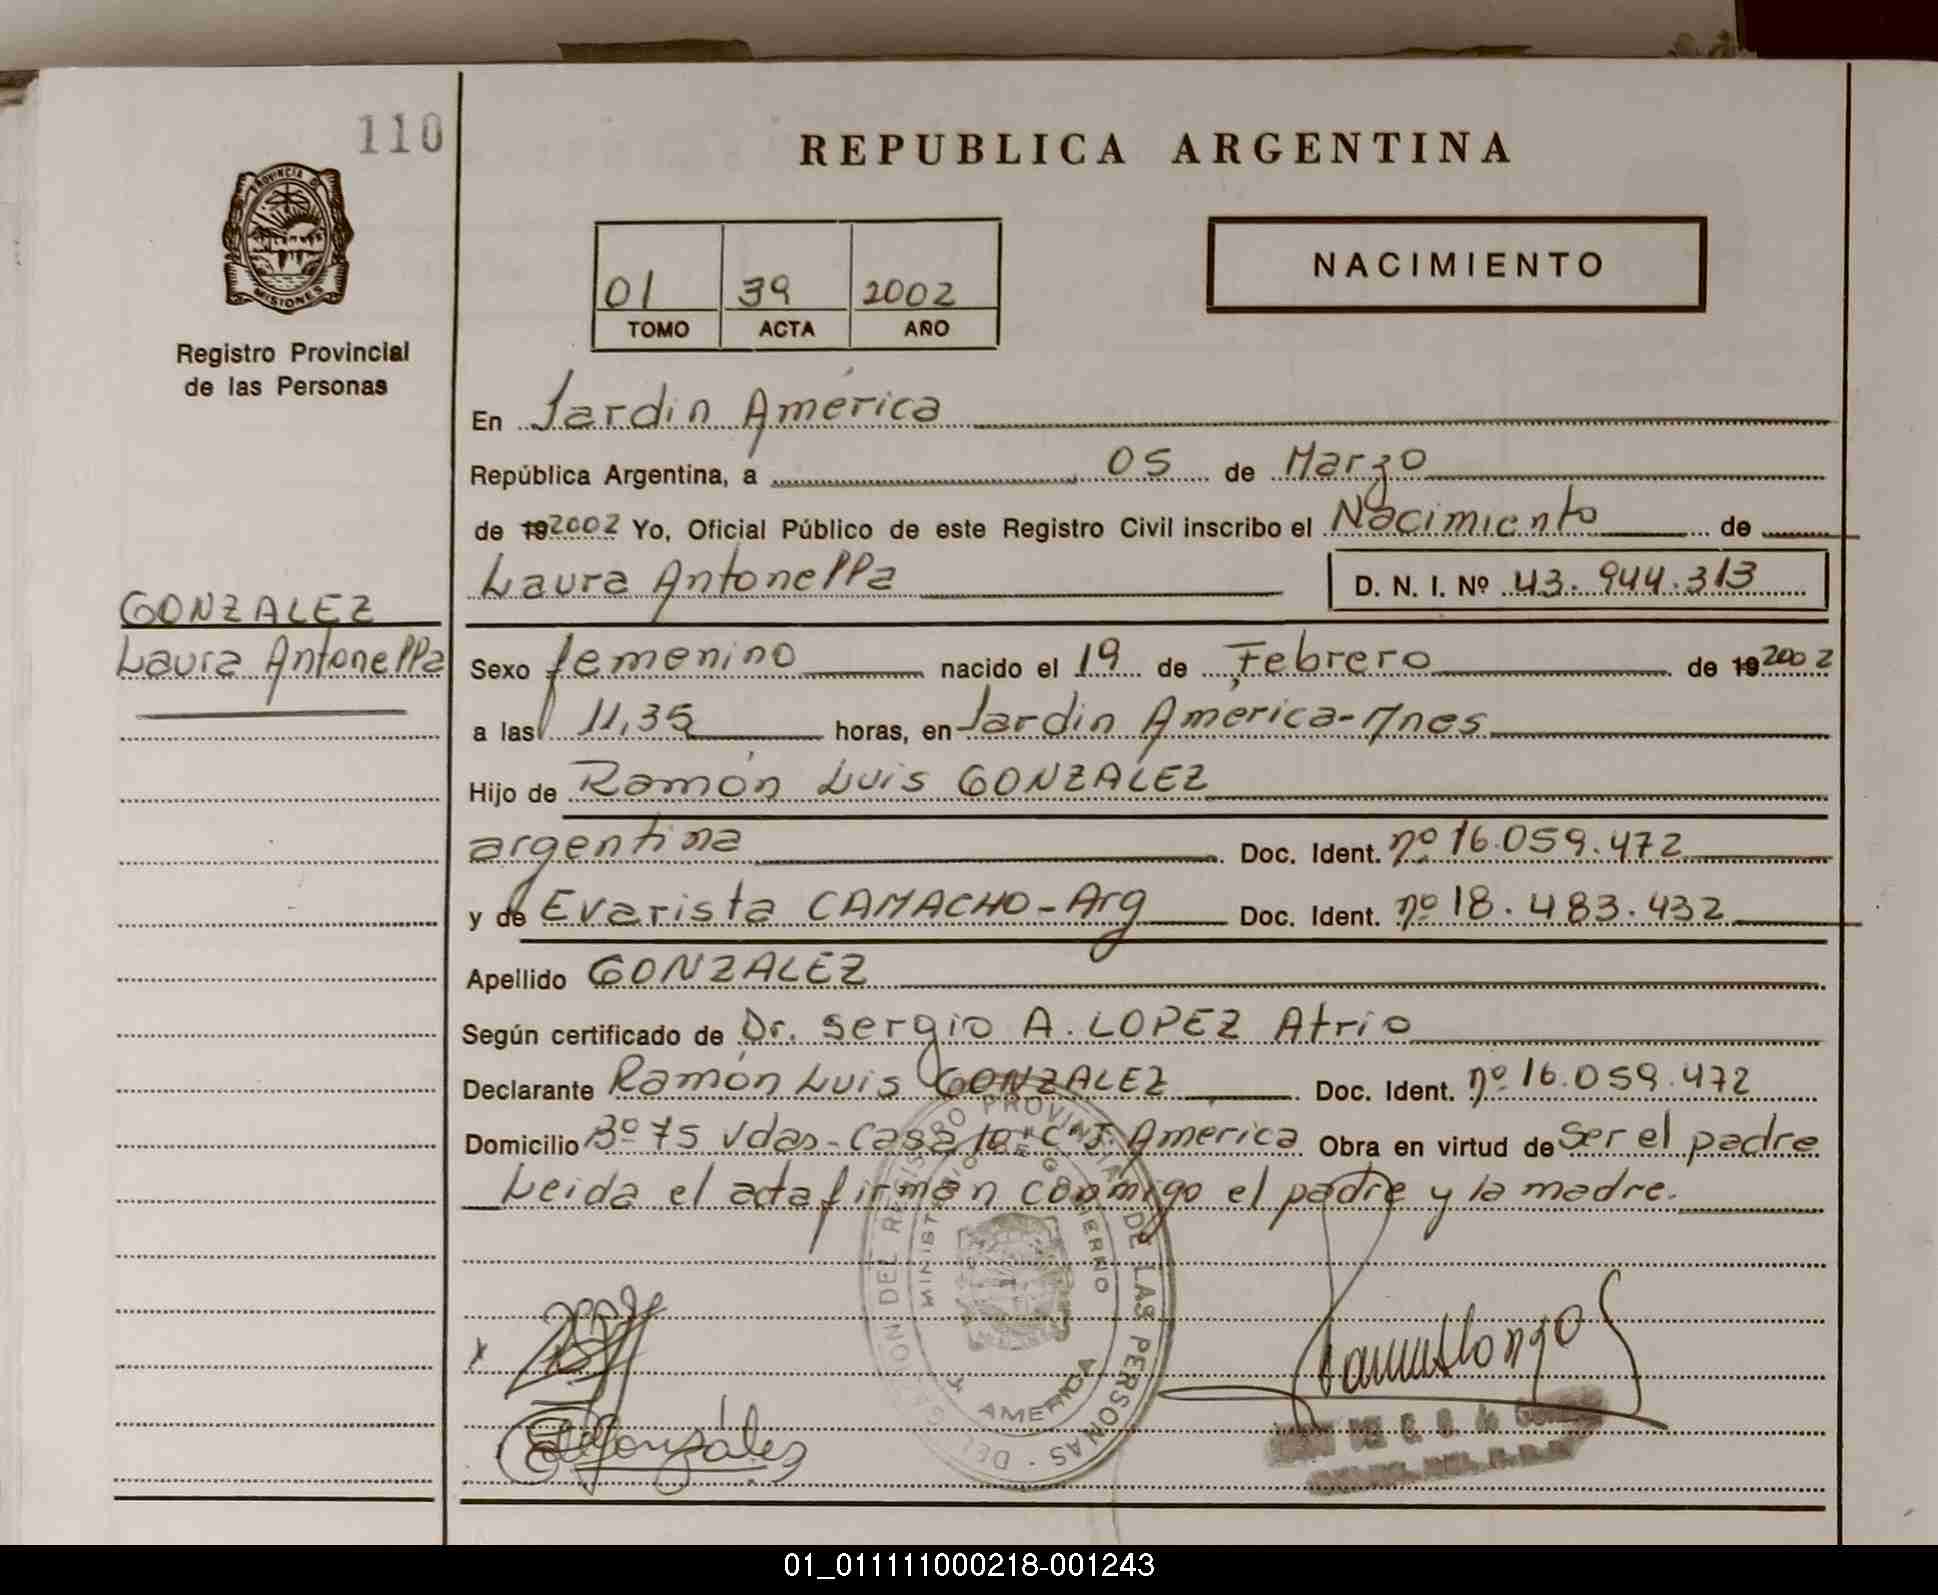 110
REPUBLICA ARGENTINA
PROVINCIA DE
MISIONES
Registro Provincial
de las Personas
01 39 2002
TOMO ACTA AÑO
NACIMIENTO
En Jardin América
República Argentina, a 05 de Marzo
de 192002 Yo, Oficial Público de este Registro Civil inscribo el Nacimiento de
Laura Antonella D. N. I. Nº 43.944.313
GONZALEZ
Laura Antonella
Sexo femenino nacido el 19 de Febrero de 192002
a las 11,35 horas, en Jardin America-Mnes
Hijo de Ramón Luis GONZALEZ
argentina Doc. Ident. nº 16.059.472
y de Evarista CAMACHO-Arg Doc. Ident. nº 18.483.432
Apellido GONZALEZ
Según certificado de Dr. Sergio A. LOPEZ Atrio
Declarante Ramón Luis GONZALEZ Doc. Ident. nº 16.059.472
Domicilio Bº 75 Vdas-Casa 10 "C" J. America Obra en virtud de Ser el padre
Leida el acta firman conmigo el padre y la madre.
DEL REGISTRO PROVINCIAL DE LAS PERSONAS
MINISTERIO DE GOBIERNO
J. AMERICA
González
01_011111000218-001243